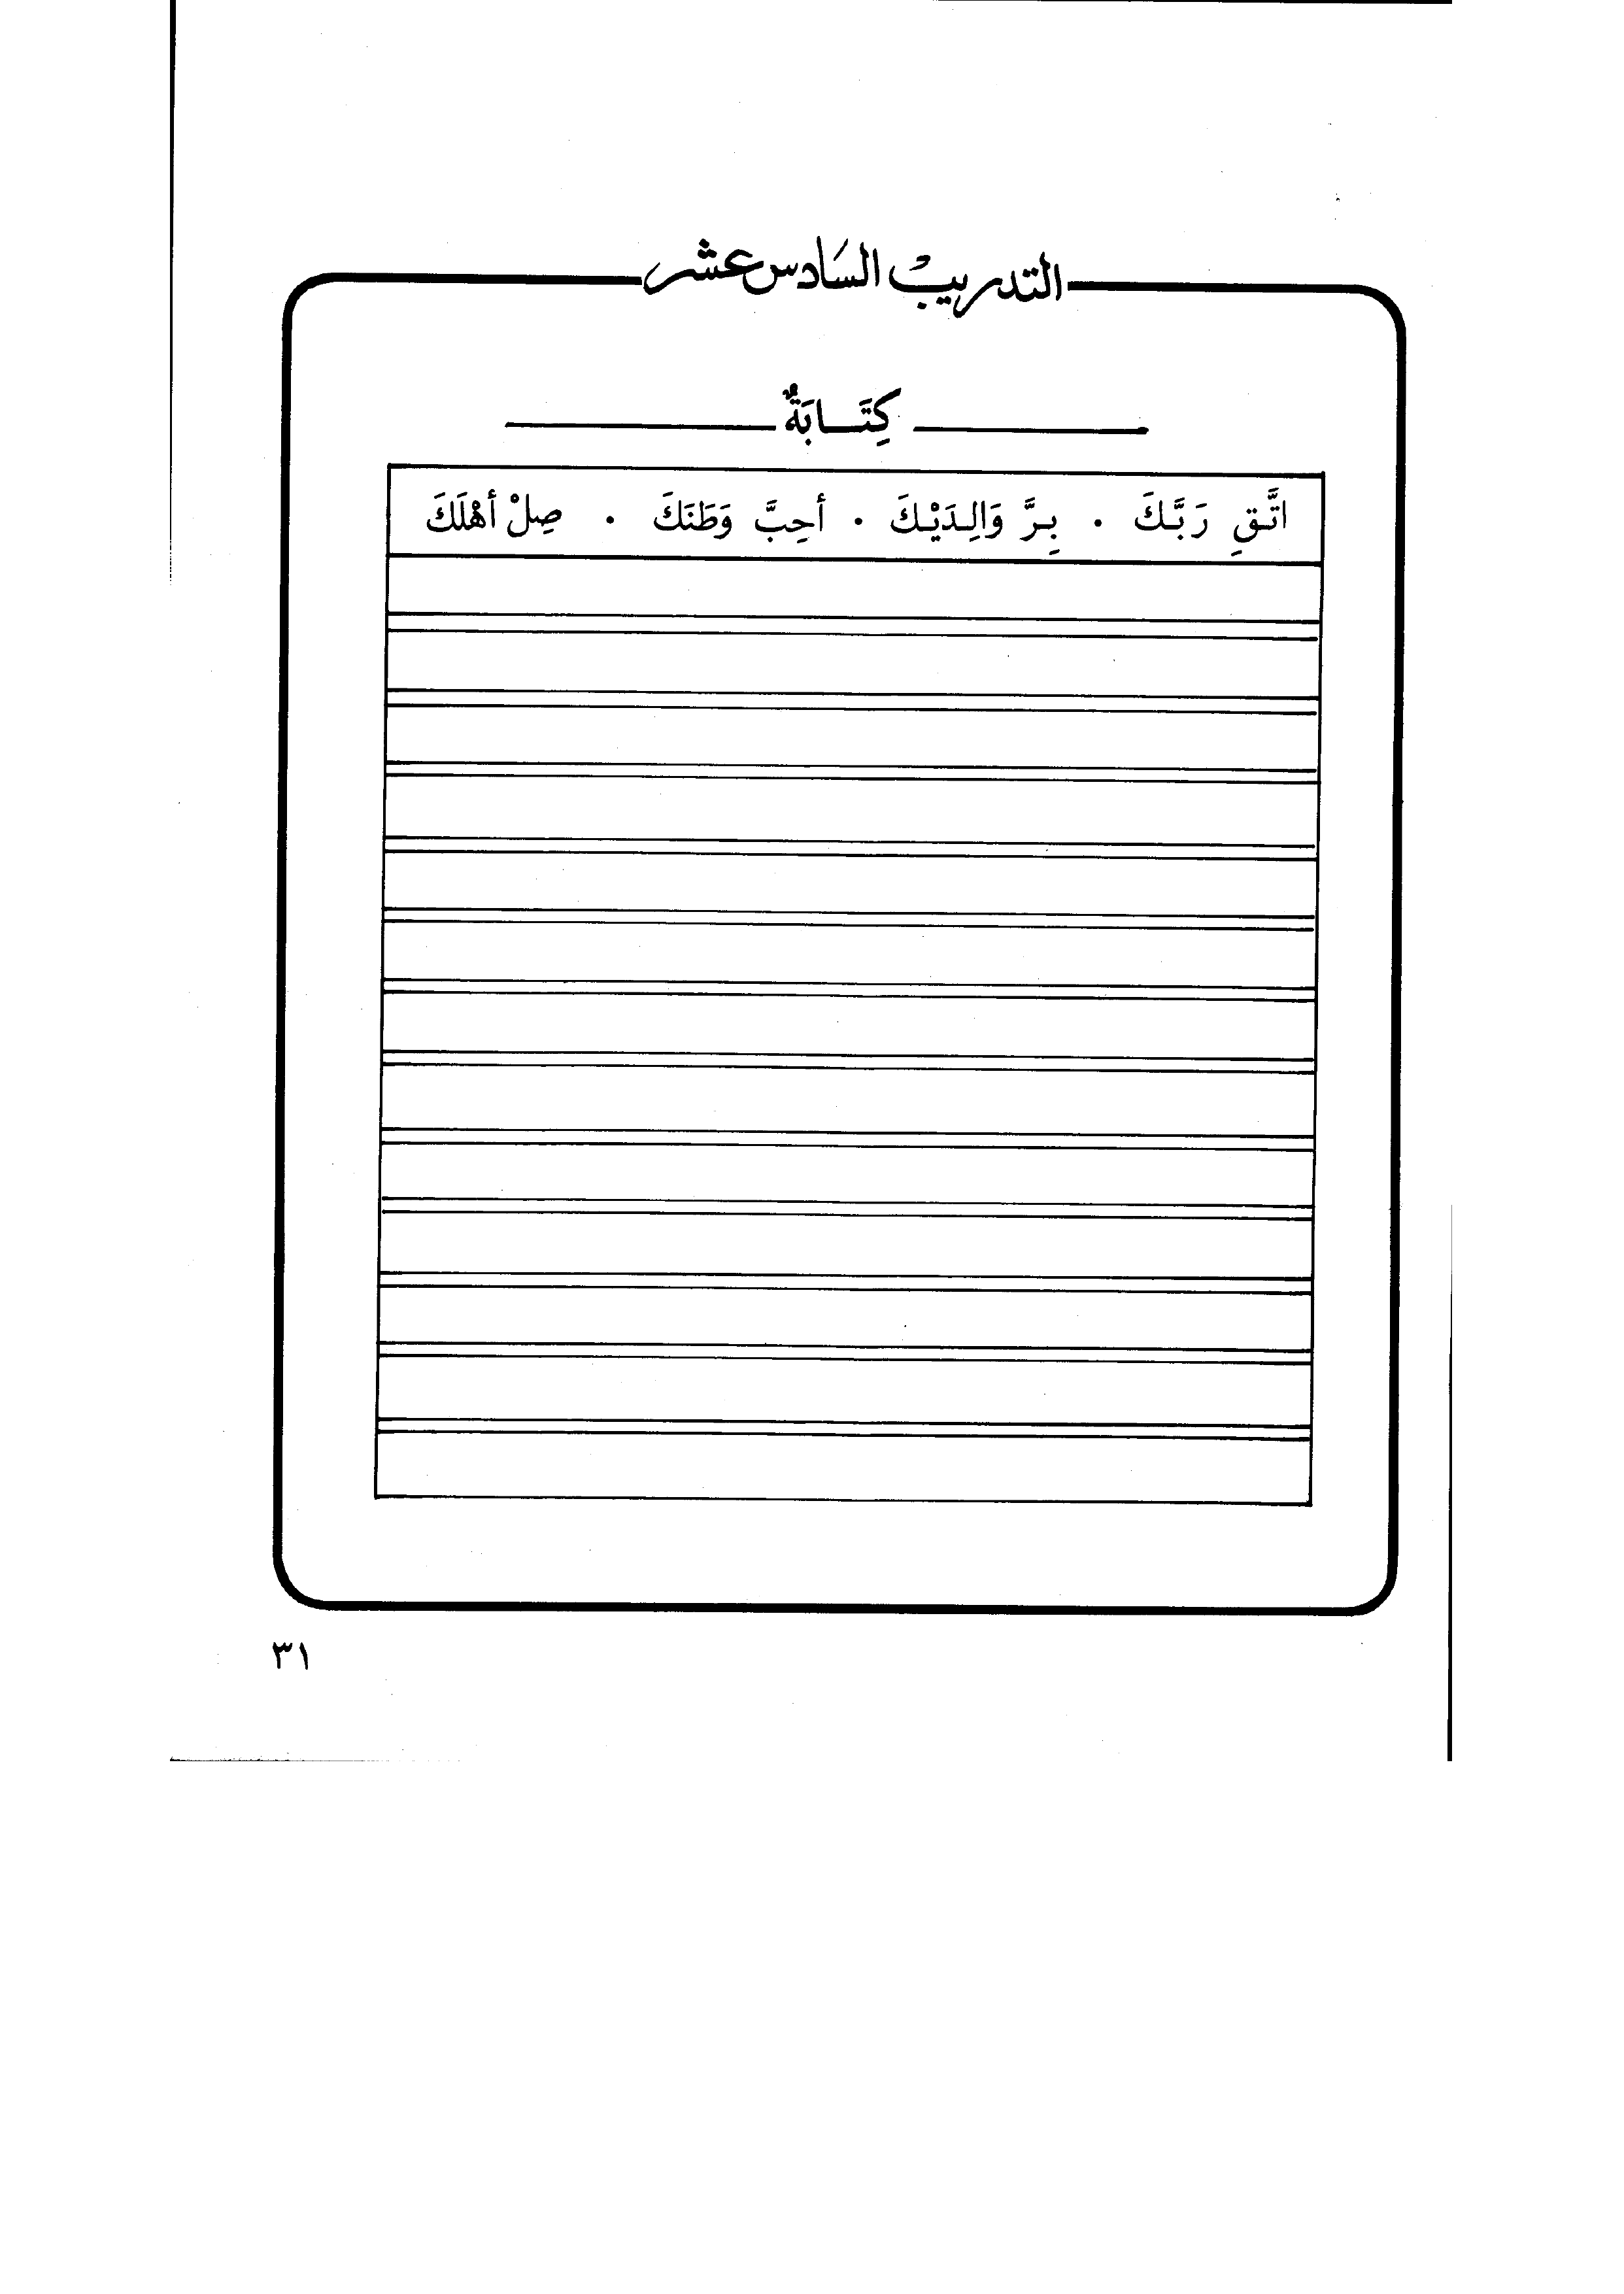 التدريب السَادس عشر
كِتَـــابَةٌ
اتَّـقِ رَبَّـكَ . بِـرَّ وَالِـدَيْـكَ . أحِبَّ وَطَنَكَ . صِلْ أهْلَكَ
٣١